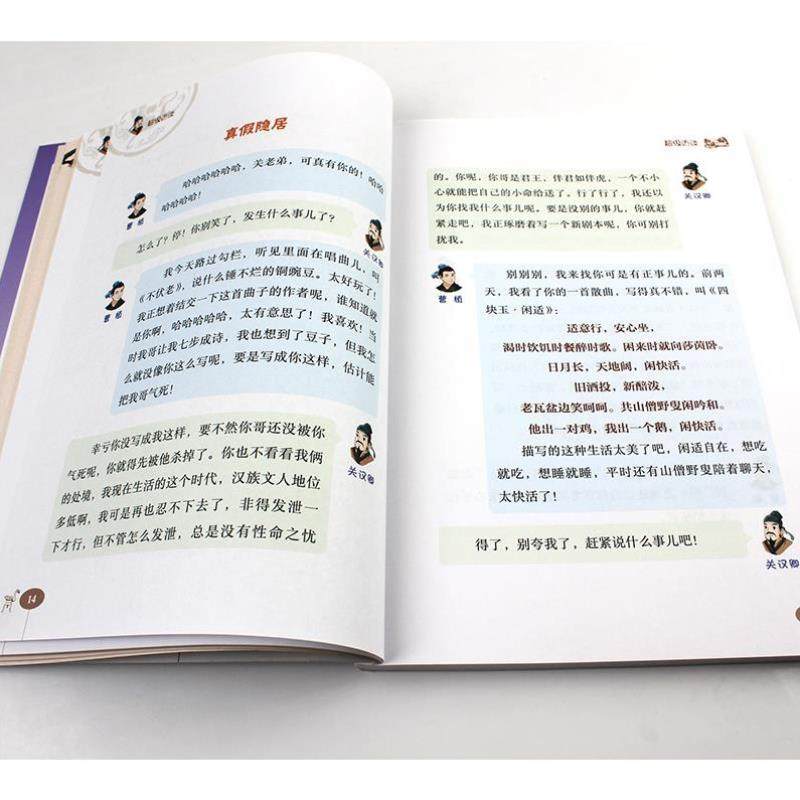 超级访谈
真假隐居
哈哈哈哈哈哈，关老弟，可真有你的！哈哈
哈哈哈哈！
曹植
怎么了？停！你别笑了，发生什么事儿了？
关汉卿
我今天路过勾栏，听见里面在唱曲儿，叫
《不伏老》，说什么锤不烂的铜豌豆。太好玩了！
我正想着结交一下这首曲子的作者呢，谁知道就
是你啊，哈哈哈哈哈，太有意思了！我喜欢！当
时我哥让我七步成诗，我也想到了豆子，但我怎
么就没像你这么写呢，要是写成你这样，估计能
把我哥气死！
曹植
幸亏你没写成我这样，要不然你哥还没被你
气死呢，你就得先被他杀掉了。你也不看看我俩
的处境，我现在生活的这个时代，汉族文人地位
多低啊，我可是再也忍不下去了，非得发泄一
下才行，但不管怎么发泄，总是没有性命之忧
关汉卿
14
超级访谈
的。你呢，你哥是君王，伴君如伴虎，一个不小
心就能把自己的小命给送了。行了行了，我还以
为你找我什么事儿呢。要是没别的事儿，你就赶
紧走吧，我正琢磨着写一个新剧本呢，你可别打
扰我。
关汉卿
别别别，我来找你可是有正事儿的。前两
天，我看了你的一首散曲，写得真不错，叫《四
块玉·闲适》：
适意行，安心坐，
渴时饮饥时餐醉时歌。困来时就向莎茵卧。
日月长，天地阔，闲快活。
旧酒投，新醅泼，
老瓦盆边笑呵呵。共山僧野叟闲吟和。
他出一对鸡，我出一个鹅，闲快活。
描写的这种生活太美了吧，闲适自在，想吃
就吃，想睡就睡，平时还有山僧野叟陪着聊天，
太快活了！
曹植
得了，别夸我了，赶紧说什么事儿吧！
关汉卿